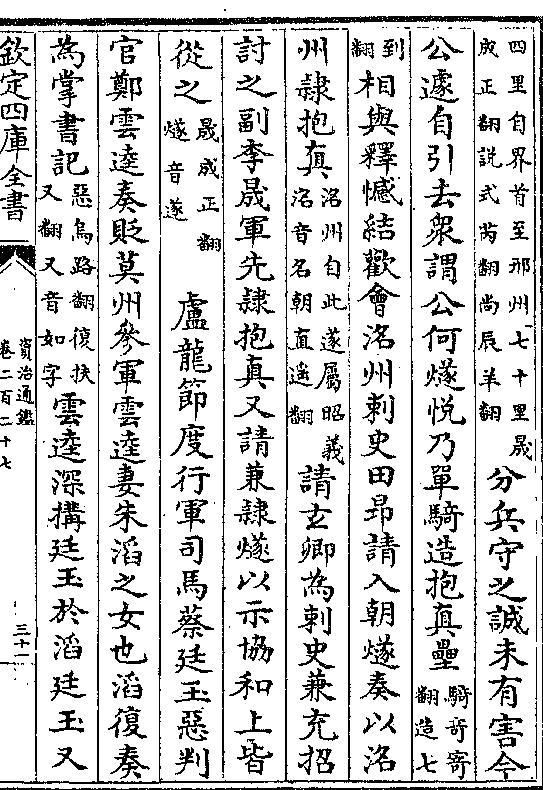 四里自界首至邢州七十里晟成正翻説式芮翻尚辰羊翻分兵守之誠未有害今
公遽自引去衆謂公何燧悦乃單騎造抱真壘騎奇寄翻造七
到翻相與釋憾結歡會洺州刺史田昂請入朝燧奏以洺
州隸抱真洺州自此遂屬昭義洺音名朝直遥翻請玄卿為刺史兼充招
討之副李晟軍先隸抱真又請兼隸燧以示協和上皆
從之晟成正翻燧音遂 盧龍節度行軍司馬蔡廷玉惡判
官鄭雲逵奏貶莫州參軍雲逵妻朱滔之女也滔復奏
為掌書記惡烏路翻復扶又翻又音如字雲逵深搆廷玉於滔廷玉又
欽定四庫全書
資治通鑑
卷二百二十七
三十一